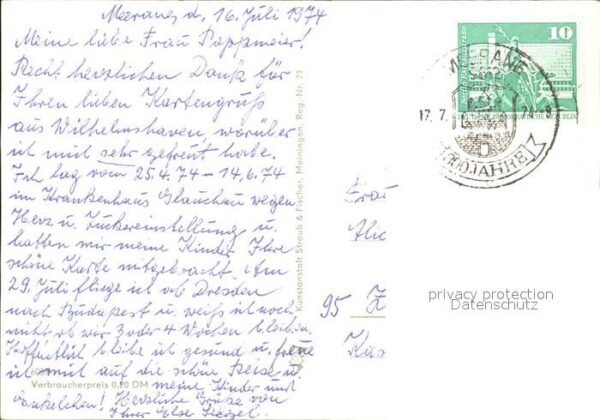 Meerane, d. 16. Juli 1974
Meine liebe Frau Pappmeier!
Recht herzlichen Dank für
Ihren lieben Kartengruß
aus Wilhelmshaven, worüber
ich mich sehr gefreut habe.
Ich lag vom 25.4.74 – 14.6.74
im Krankenhaus Glauchau wegen
Herz u. Zuckereinstellung u.
hatten mir meine Kinder Ihre
schöne Karte mitgebracht. Am
29. Juli fliege ich ab Dresden
nach Budapest u. weiß ich noch
nicht ob wir 3 oder 4 Wochen bleiben.
Hoffentlich bleibe ich gesund u. freue
ich mich auf die schöne Reise u.
meine Kinder und
Enkelchen! Herzliche Grüße von
Ihrer Else
Verbraucherpreis 0,20 DM
Kunstanstalt Straub & Fischer, Meiningen, Reg.-Nr. 23
10
MEERANE
17.7.
JAHRE
Frau
95
privacy protection
Datenschutz